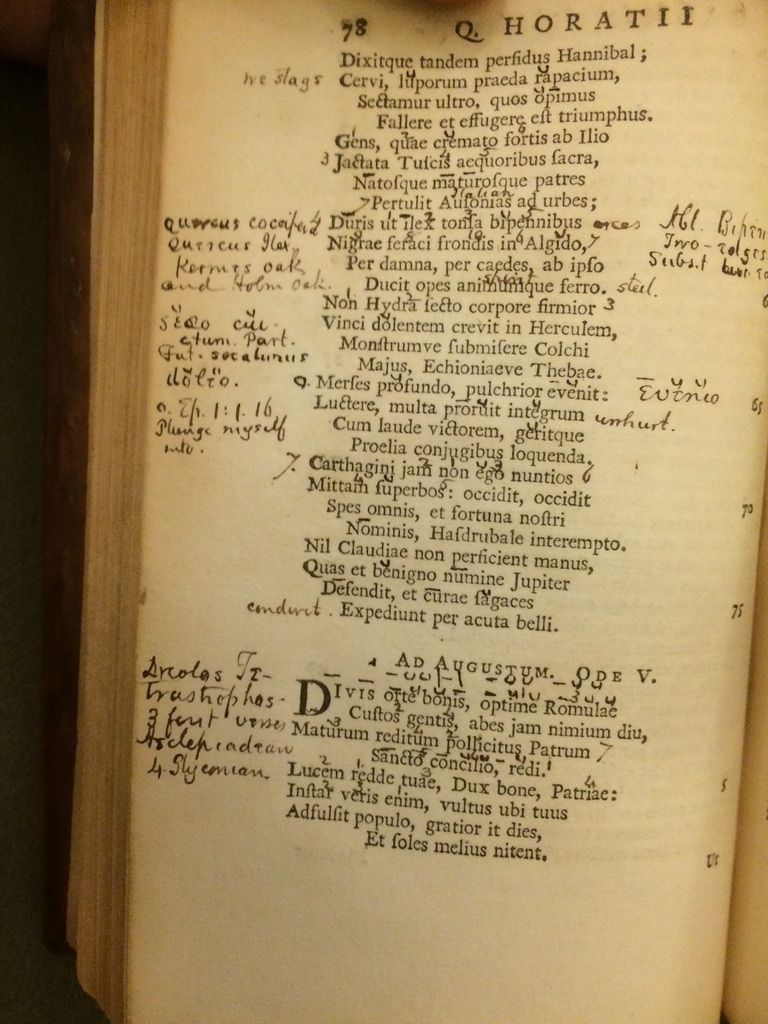 78 Q. HORATII
Dixitque tandem perfidus Hannibal;
we stags Cervi, luporum praeda rapacium,
Sectamur ultro, quos opimus
Fallere et effugere est triumphus.
Gens, quae cremato fortis ab Ilio
3 Jactata Tuscis aequoribus sacra,
Natosque maturosque patres
Italian
7 Pertulit Ausonias ad urbes;
quercus coccifera Duris ut ilex tonsa bipennibus Abl.
Quercus Ilex. Nigrae feraci frondis in Algido, 7
Kermes oak Per damna, per caedes, ab ipso Subst
and Holm oak. Ducit opes animumque ferro. steel.
Non Hydra secto corpore firmior 3
Sĕco cui Vinci dolentem crevit in Herculem,
ctum. Part. Monstrumve submisere Colchi
Fut. secaturus Majus, Echioniaeve Thebae.
dŏlĕo. Merses profundo, pulchrior evenit: Ēvĕnĭo
o. Ep. 1: 1. 16 Luctere, multa proruit integrum unhurt. 65
Plunge myself Cum laude victorem, geritque
into. Proelia conjugibus loquenda.
7. Carthagini jam non ego nuntios 6
Mittam superbos: occidit, occidit
Spes omnis, et fortuna nostri 70
Nominis, Hasdrubale interempto.
Nil Claudiae non perficient manus,
Quas et benigno numine Jupiter
Defendit, et curae sagaces
conduct. Expediunt per acuta belli. 75
AD AUGUSTUM. ODE V.
Dicolos Te- DIVIS orte bonis, optime Romulae
trastrophos. Custos gentis, abes jam nimium diu,
3 first verses Maturum reditum pollicitus Patrum 7
Asclepiadean Sancto concilio, redi.
4. Glyconian. Lucem redde tuae, Dux bone, Patriae: 5
Instar veris enim, vultus ubi tuus
Adfulsit populo, gratior it dies,
Et soles melius nitent.